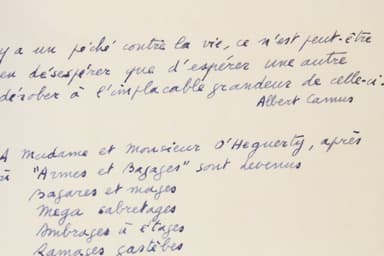 y a un péché contre la vie, ce n'est peut-être
en désespérer que d'espérer une autre
dérober à l'implacable grandeur de celle-ci.
Albert Camus
A Madame et Monsieur O'Heguerty, après
à "Armes et Bagages" sont devenus
Bagares et mages
Mega sabretages
Ambrages à étages
Ramages gastèbes